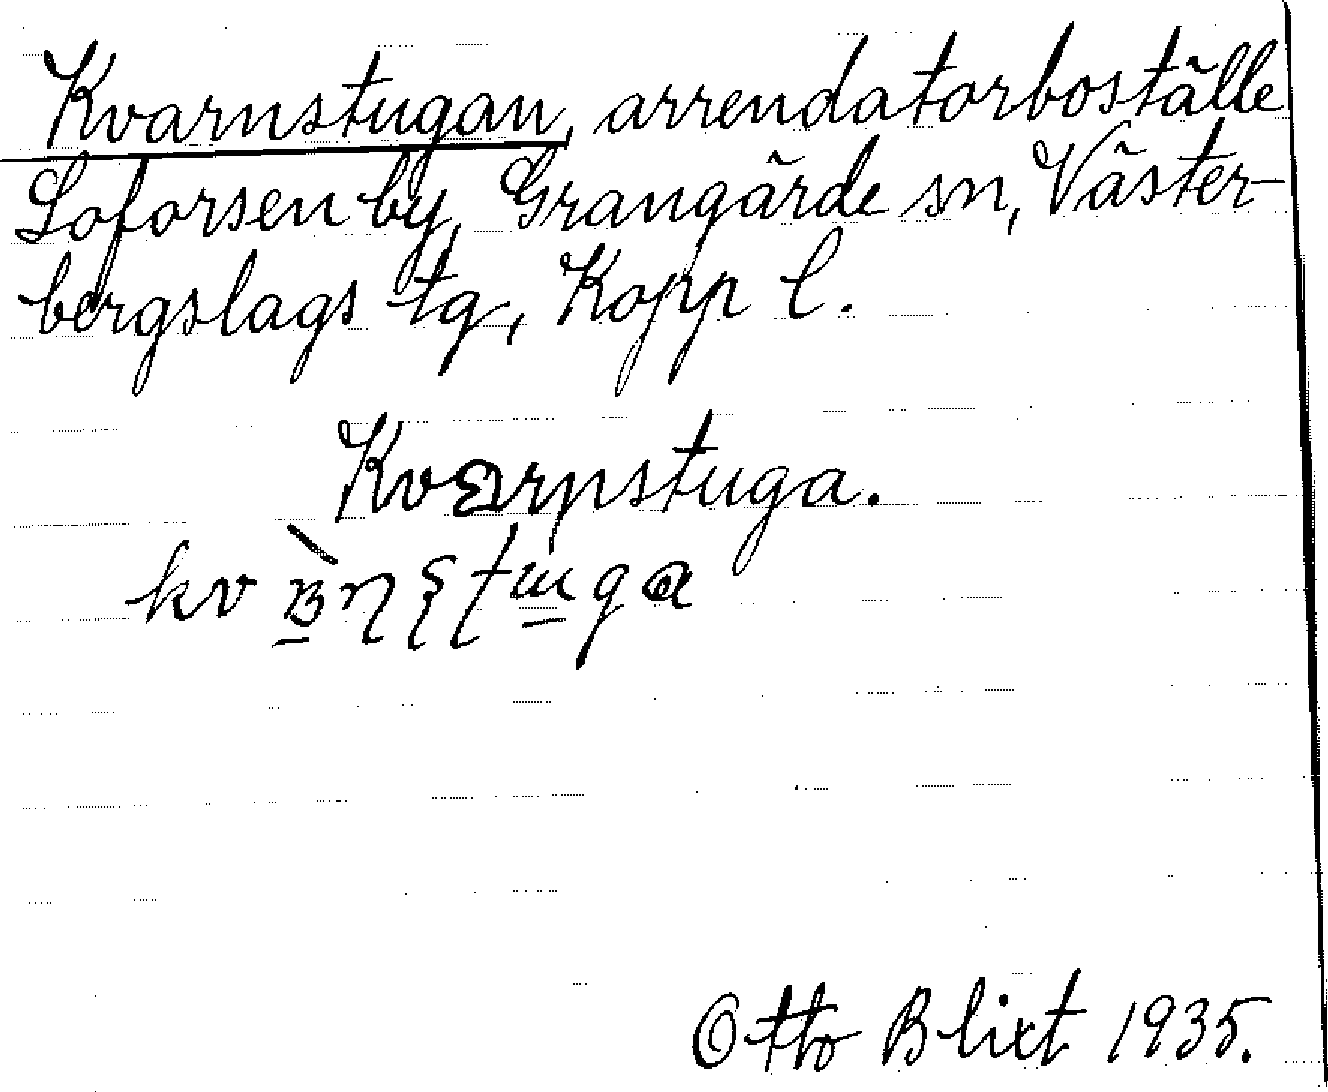 Kvarnstugan, arrendatorboställe
Loforsen by, Grangärde sn, Väster-
bergslags tg, Kopp l.
Otto Blixt 1935.